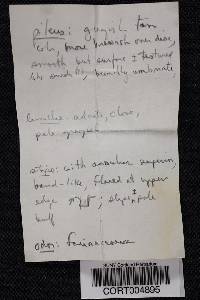 pileus: grayish tan
ish, more brownish over disc,
smooth but surface ± textured
like suede, broadly umbonate
lamellae - adnate, close,
pale grayish
stipe: with annulus superior,
band-like, flared at upper
edge ; stipe ± pale
buff
odor: farinaceous
SUNY Cortland Herbarium
CORT004895